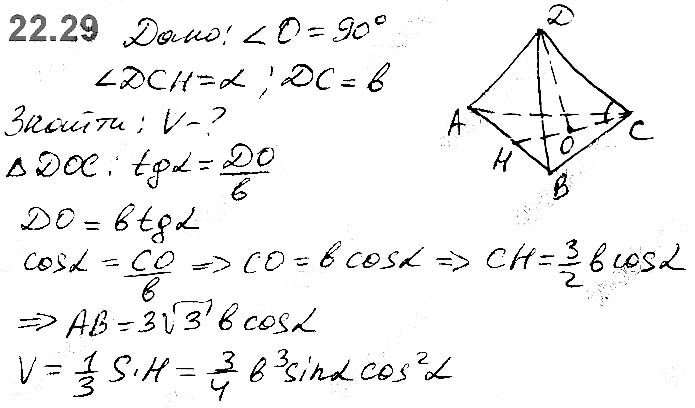 22.29 Дано: ∠O = 90°
∠DCH = α; DC = b
Знайти: V - ?
△DOC: tgα = DO/b
DO = b tgα
cosα = CO/b => CO = b cosα => CH = 3/2 b cosα
=> AB = 3√3 b cosα
V = 1/3 S·H = 3/4 b³ sinα cos²α
D
A
H
O
C
B